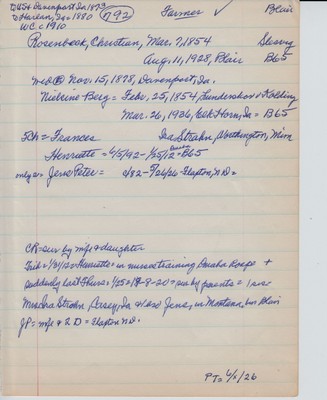 to USA Davenport Ia 1873
to Harlan, Ia = 1880 792 Farmer ✓ Blair
W.C. = 1910
Rosenbeck, Christian, Mar. 7, 1854 Slesvig
Aug. 11, 1928, Blair B65
wed Nov. 15, 1878, Davenport, Ia.
Nielsine Berg = Febr. 25, 1854, Lunderskov & Kolding
Mar. 26, 1936, Elk Horn, Ia = B65
5 Ch = Frances Ira Strahn, Worthington, Minn
Henriette = 6/5/92 - 1/25/12 = B65
only s = Jens Peter = c/82 - 5/26/26 = Clapton, N.D. =
CR = sur by wife & daughter
Trib = 1/31/12 = Henriette = in nurses training Omaha Hosp +
suddenly last Thurs = 1/25 = 19-8-20 = sur by parents = 1 sis =
Mrs Ira Strahn, Casey, Ia & also Jens, in Montana, bur Blair
JP = wife & 2 D = Clapton N.D.
PT = 6/2/26